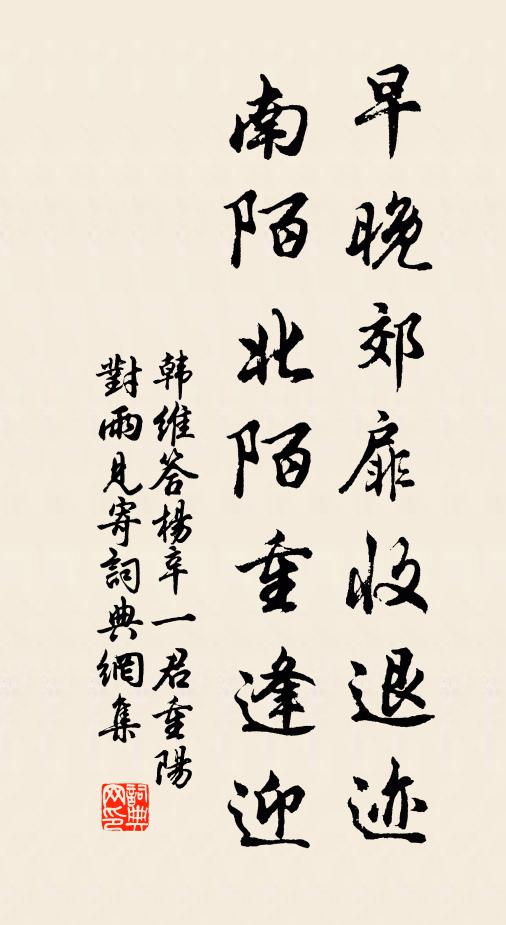 早晚郊扉收退迹
南陌北陌重逢迎
韩维答楊卒一君重陽
對雨見寄詞典網集
詞典网印